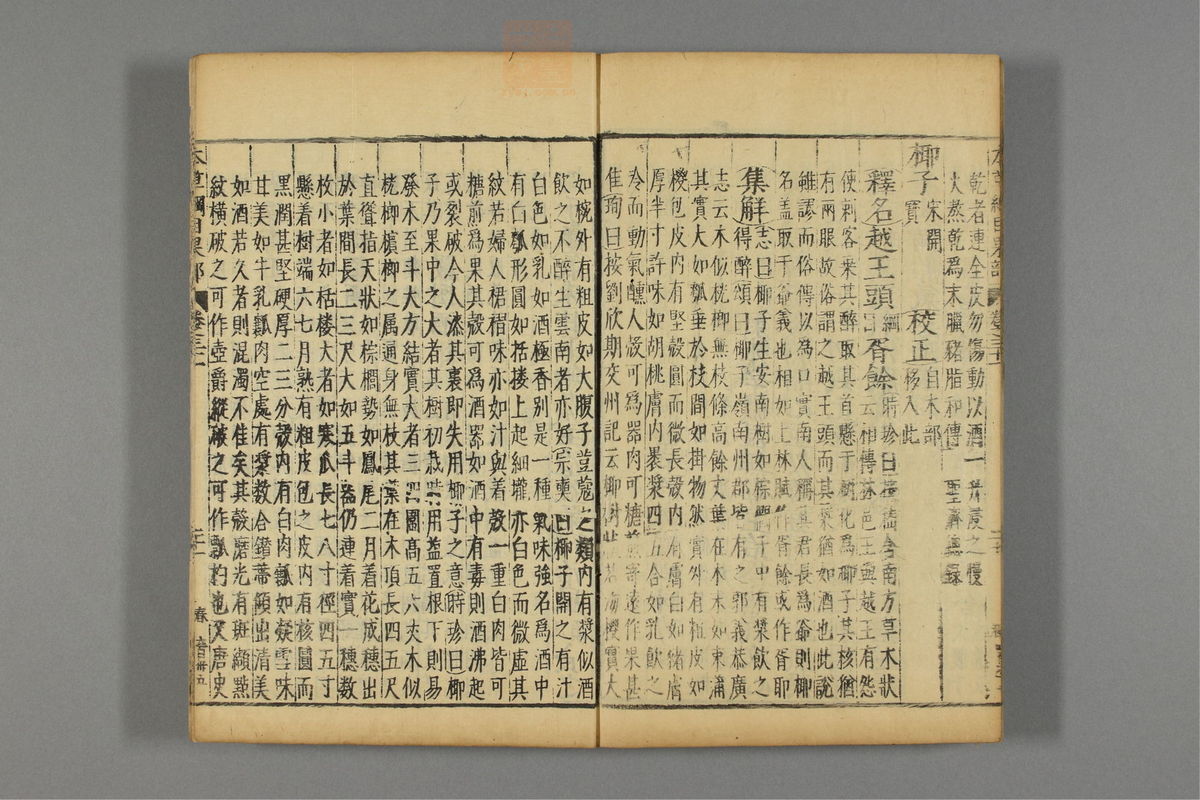 乾者連全皮勿傷動以酒一
火蒸乾為末臘豬脂和傅
聖濟總錄
椰子 宋開寶 校正 自木部移入此
釋名 越王頭 綱目 胥餘 時珍曰
南方草木狀
云相傳林邑王與越王有怨
使刺客乘其醉取其首懸于樹化為椰子其核猶
有兩眼故俗謂之越王頭而其漿猶如酒也此說
雖謬而俗傳以為口實南人稱其君長為爺則椰
名蓋取于爺義也相如上林賦作胥餘或作胥耶
集解 志曰椰子生安南樹如棕櫚子中有漿飲之
得醉頌曰椰子嶺南州郡皆有之郭義恭廣
志云木似桄榔無枝條高餘丈葉在木末如束蒲
其實大如瓠垂於枝間如掛物然實外有粗皮如
椶包皮內有堅殼圓而微長殼內有膚白如豬膚
厚半寸許味如胡桃膚內裹漿四五合如乳飲之
冷而動氣醺人殼可為器肉可糖煎寄遠作果甚
佳珣曰按劉欣期交州記云椰樹狀若海椶實大
如椀外有粗皮如大腹子荳蔻之類內有漿似酒
飲之不醉生雲南者亦好宗奭曰椰子開之有汁
白色如乳如酒極香別是一種氣味強名為酒中
有白瓤形圓如栝樓上起細壟亦白色而微虛其
紋若婦人裙褶味亦如汁與着殼一重白肉皆可
糖煎為果其殼可為酒器如酒中有毒則酒沸起
或裂破今人漆其裏即失用椰子之意時珍曰椰
子乃果中之大者其樹初栽時用鹽置根下則易
發木至斗大方結實大者三四圍高五六丈木似
桄榔檳榔之属通身無枝其葉在木頂長四五尺
直聳指天狀如棕櫚勢如鳳尾二月着花成穗出
於葉間長二三尺大如五斗器仍連着實一穗數
枚小者如栝樓大者如寒瓜長七八寸徑四五寸
懸着樹端六七月熟有粗皮包之皮內有核圓而
黑潤甚堅硬厚二三分殼內有白肉瓤如凝雪味
甘美如牛乳瓤肉空處有漿數合鑽蒂傾出清美
如酒若久者則混濁不佳矣其殼磨光有斑纈點
紋橫破之可作壺爵縱破之可作瓢杓也又唐史
本草綱目果部